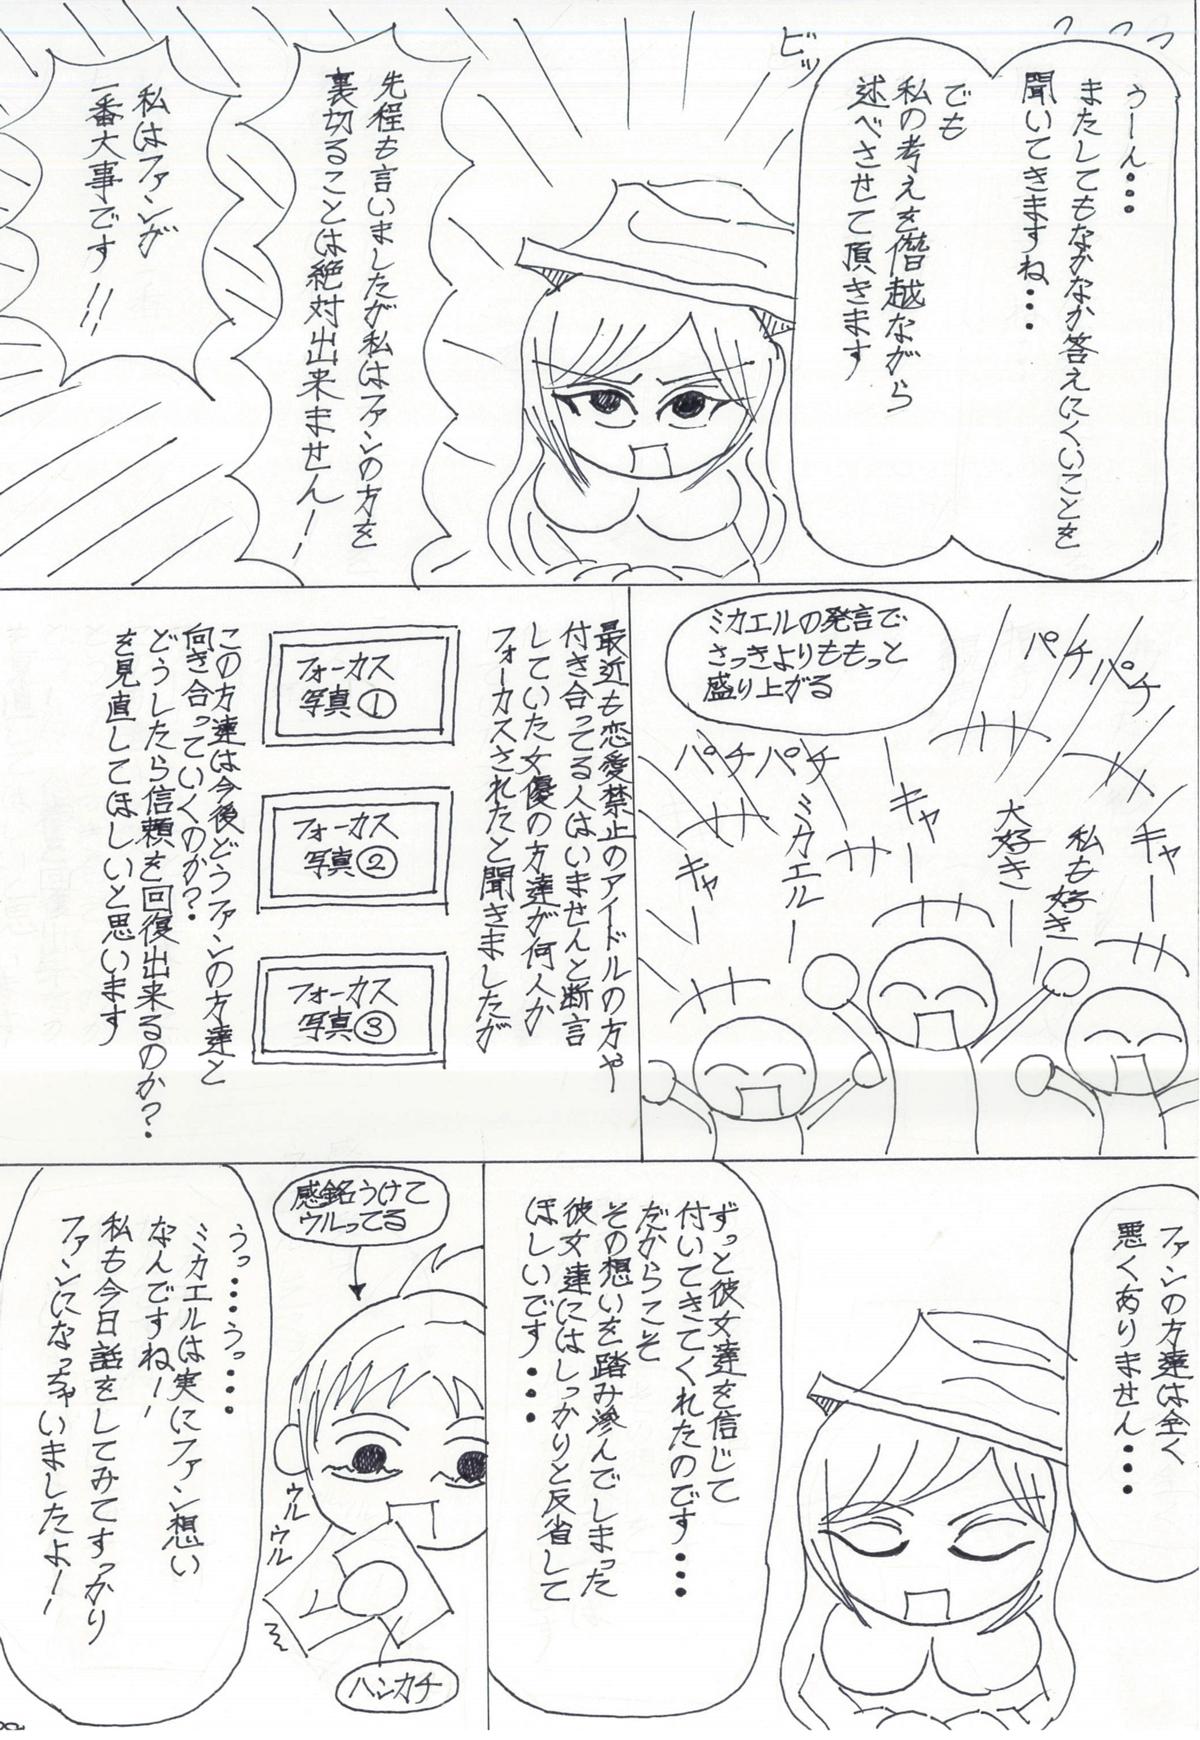 うーん・・・
またしてもなかなか答えにくいことを
聞いてきますね・・・
でも
私の考えを僭越ながら
述べさせて頂きます
ビッ
先程も言いましたが私はファンの方を
裏切ることは絶対出来ません!
私はファンが
一番大事です!!
ミカエルの発言で
さっきよりももっと
盛り上がる
パチパチ
パチパチ
キャー
私も好き
大好きー
キャー
ミカエルー
キャー
最近も恋愛禁止のアイドルの方や
付き合ってる人はいませんと断言
していた女優の方達が何人か
フォーカスされたと聞きましたが
フォーカス
写真①
フォーカス
写真②
フォーカス
写真③
この方達は今後どうファンの方達と
向き合っていくのか?
どうしたら信頼を回復出来るのか?
を見直してほしいと思います
ファンの方達は全く
悪くありません・・・
ずっと彼女達を信じて
付いてきてくれたのです・・・
だからこそ
その想いを踏み滲んでしまった
彼女達にはしっかりと反省して
ほしいです・・・
感銘うけて
ウルってる
ウルウル
ハンカチ
うっ・・・うっ・・・
ミカエルは実にファン想い
なんですね!
私も今日話をしてみてすっかり
ファンになっちゃいましたよ!